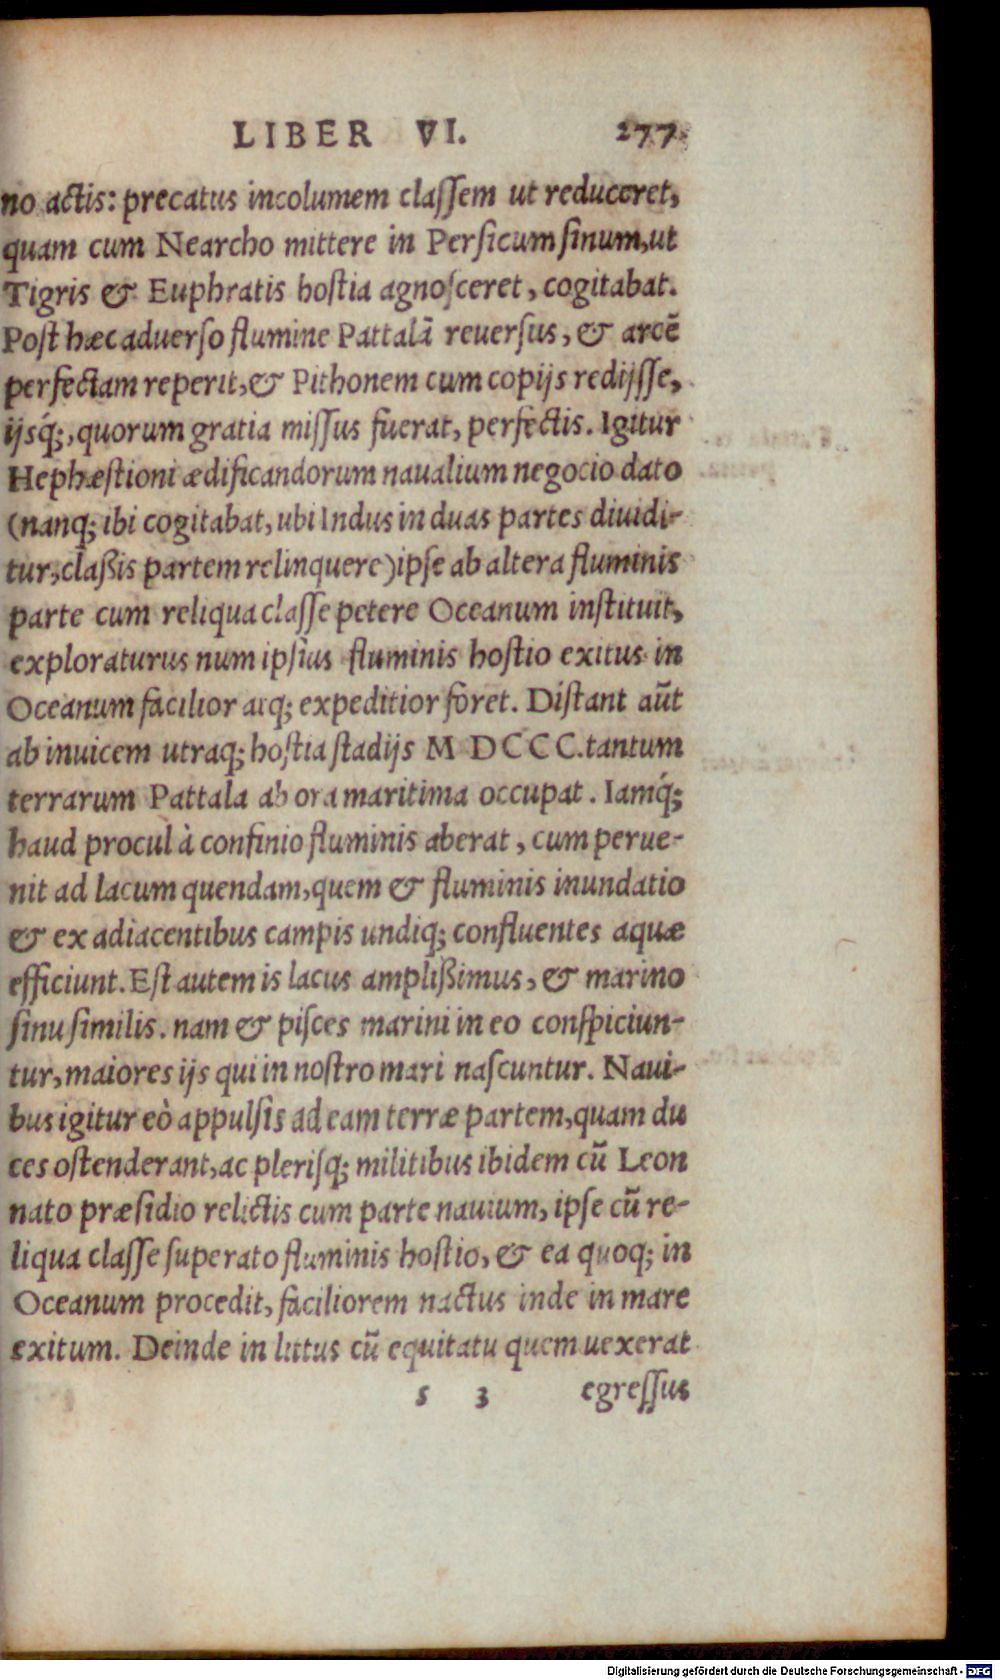 LIBER VI. 277
no actis: precatus incolumem classem ut reduceret,
quam cum Nearcho mittere in Persicum sinum, ut
Tigris & Euphratis hostia agnosceret, cogitabat.
Post hæc aduerso flumine Pattalā reuersus, & arcē
perfectam reperit, & Pithonem cum copijs redijsse,
ijsq́;, quorum gratia missus fuerat, perfectis. Igitur
Hephæstioni ædificandorum naualium negocio dato
(nanq; ibi cogitabat, ubi Indus in duas partes diuidi-
tur, claßis partem relinquere) ipse ab altera fluminis
parte cum reliqua classe petere Oceanum instituit,
exploraturus num ipsius fluminis hostio exitus in
Oceanum facilior atq; expeditior foret. Distant aūt
ab inuicem utraq; hostia stadijs M DCCC. tantum
terrarum Pattala ab ora maritima occupat. Iamq́;
haud procul à confinio fluminis aberat, cum perue-
nit ad lacum quendam, quem & fluminis inundatio
& ex adiacentibus campis undiq; confluentes aquæ
efficiunt. Est autem is lacus amplißimus, & marino
sinu similis. nam & pisces marini in eo conspiciun-
tur, maiores ijs qui in nostro mari nascuntur. Naui-
bus igitur eò appulsis ad eam terræ partem, quam du
ces ostenderant, ac plerisq; militibus ibidem cū Leon
nato præsidio relictis cum parte nauium, ipse cū re-
liqua classe superato fluminis hostio, & ea quoq; in
Oceanum procedit, faciliorem nactus inde in mare
exitum. Deinde in littus cū equitatu quem uexerat
s 3 egressus
Digitalisierung gefördert durch die Deutsche Forschungsgemeinschaft - DFG